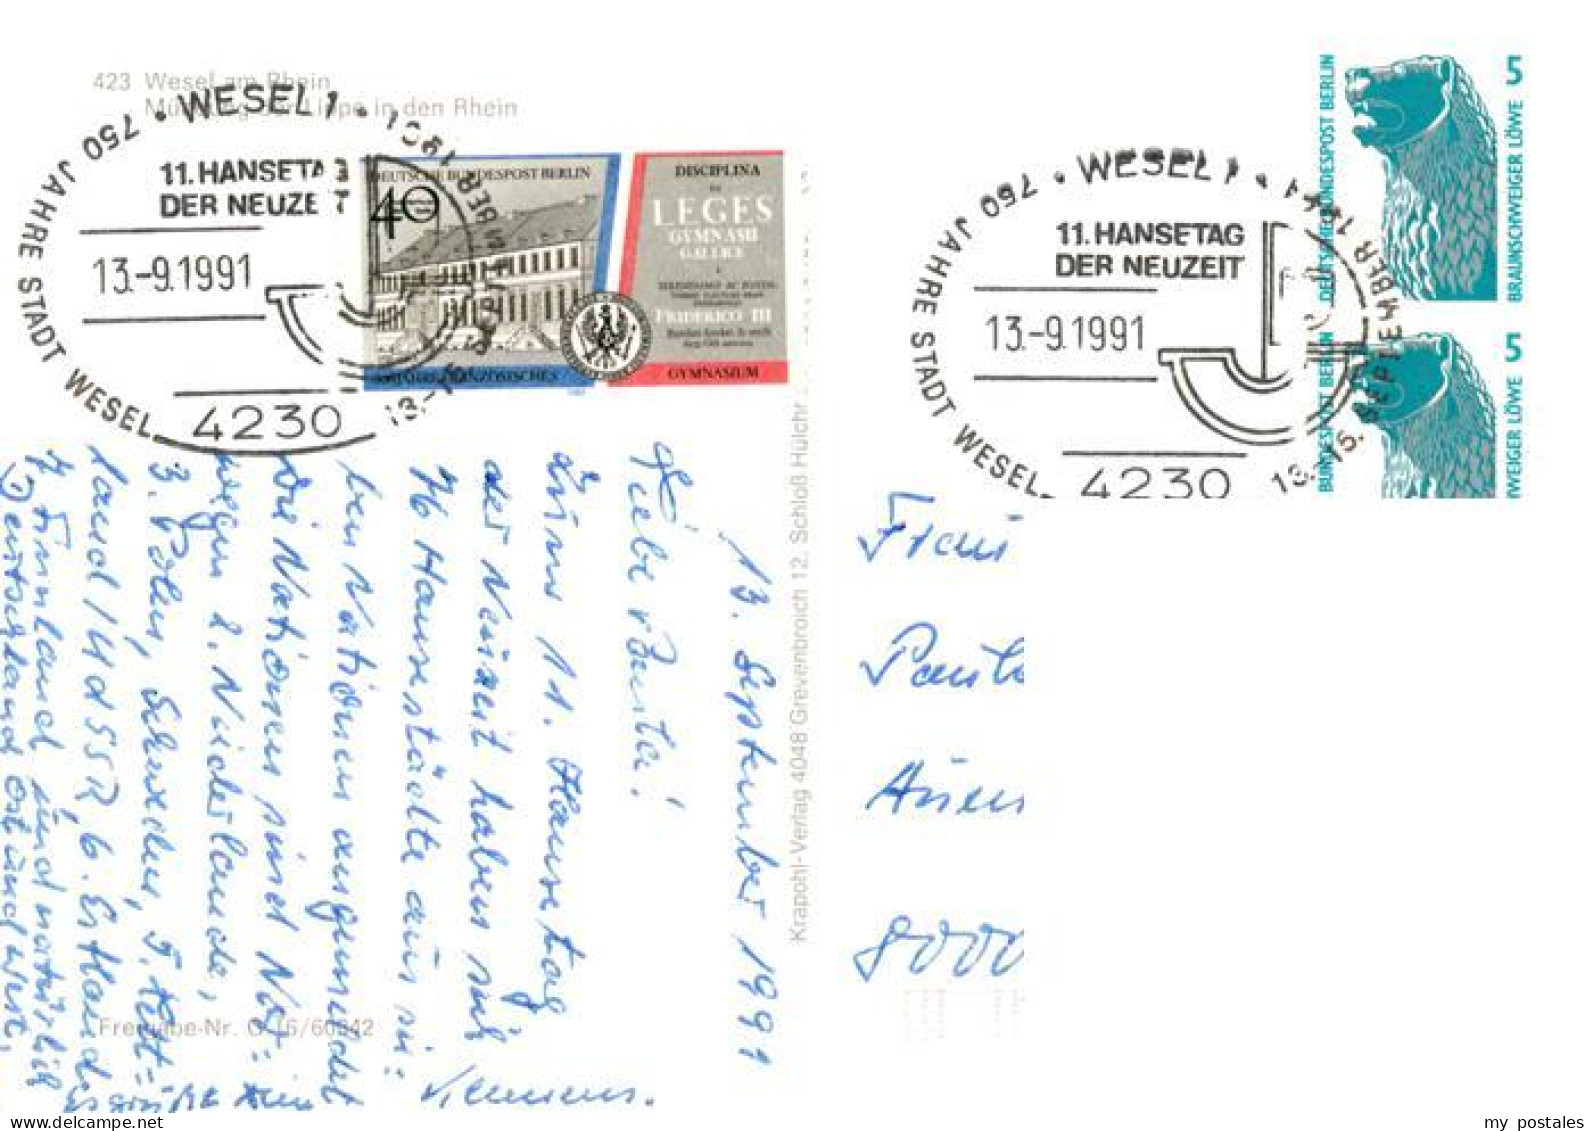 423 Wesel am Rhein
Mündung der Lippe in den Rhein
750 JAHRE STADT WESEL
WESEL 1
11. HANSETAG
DER NEUZEIT
13.-9.1991
4230
DEUTSCHE BUNDESPOST BERLIN
40
DISCIPLINA
LEGES
GYMNASII
GALLICI
FRIDERICO III
GYMNASIUM
750 JAHRE STADT WESEL
WESEL 1
13.-15. SEPTEMBER 1991
11. HANSETAG
DER NEUZEIT
13.-9.1991
4230
DEUTSCHE BUNDESPOST BERLIN
5
BRAUNSCHWEIGER LÖWE
BUNDESPOST BERLIN
5
WEIGER LÖWE
13. September 1991
Liebe
Zum 11. Hansetag
der Neuzeit haben sich
76 Hansestädte aus sie=
ben Nationen angemeldet
Die Nationen sind Nor=
wegen 2. Niederlande,
3. Polen, Schweden, 5. Lett=
land 14 d SSR, 6. Estland
7 Finnland und natürlich
Deutschland Ost und West.
Es grüßt
Klemens.
Krapohl-Verlag 4048 Grevenbroich 12, Schloß Hülchr
Freigabe-Nr.
Frau
8000
my postales